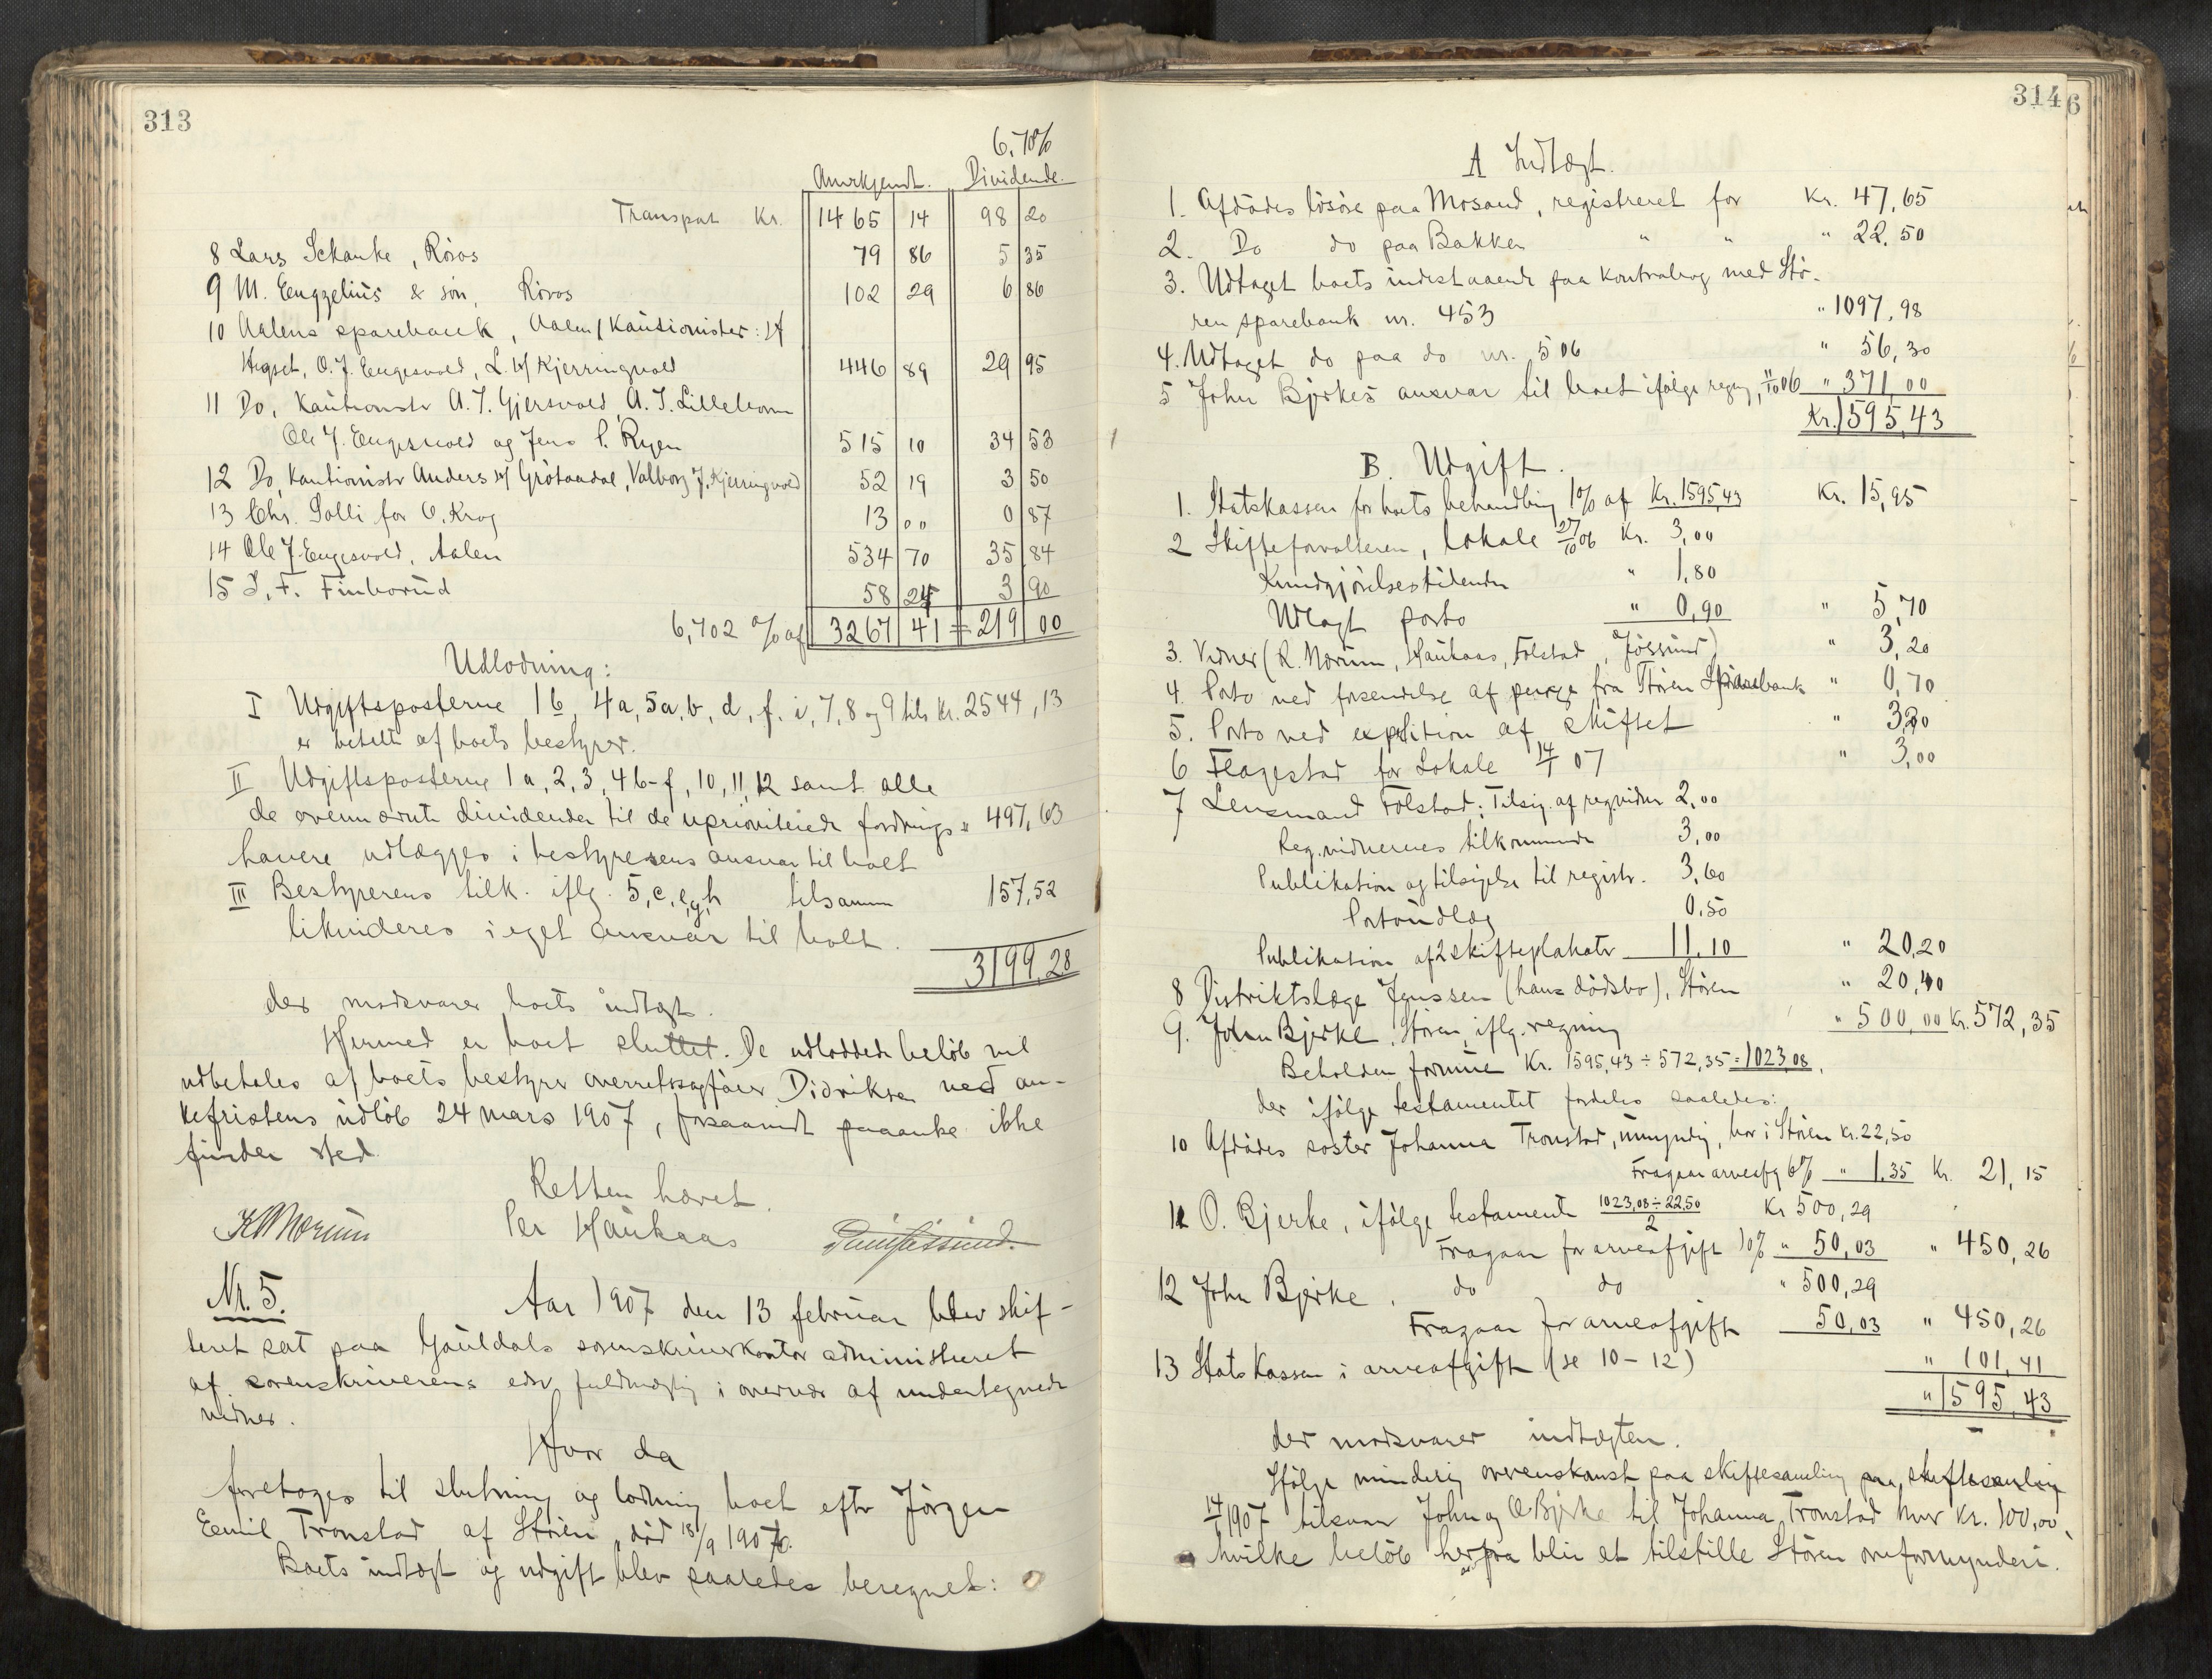 313
6,70%
Anerkjendt. Dividende.
Transport Kr. 1465 14 98 20
8 Lars Schanke, Röros 79 86 5 35
9 M. Engzelius & sön, Röros 102 29 6 86
10 Aalens sparebank, Aalen (Kautionister:
Hegset, O. J. Engesvold, L. Kjerringvold 446 89 29 95
11 Do, Kautionister A. J. Gjersvold, A. J. Lillebo
Ole J. Engesvold og Jens P. Ryen 515 10 34 53
12 Do, Kautionister Anders Grötaadal, Valborg J. Kjerringvold 52 19 3 50
13 Chr. Solli for O. Krog 13 00 0 87
14 Ole J. Engesvold, Aalen 534 70 35 84
15 J. F. Finborud 58 24 3 90
6,702 % af 3267 41 = 219 00
Udlodning:
I Udgiftsposterne 1 b, 4 a, 5 a, b, d, f. i, 7, 8 og 9 tils Kr. 2544,13
er betalt af boets bestyrer.
II Udgiftsposterne 1 a, 2, 3, 4 b-f, 10, 11, 12 samt alle
de ovennævnte dividender til de uprioriterede fordrings- " 497,63
havere udlægges i bestyrerens ansvar til boet
III Bestyrerens tilk. iflg. 5, c, e, g, h tilsammen 157,52
likvideres i eget ansvar til boet.
3199,28
der modsvarer boets indtægt.
Hermed er boet sluttet. De udloddede beløb vil
udbetales af boets bestyrer overretssagfører Didriksen ved an-
kefristens udlöb 24 mars 1907, forsaavidt paaanke ikke
finder sted.
Retten hævet.
K Mörum Per Haukaas
Nr. 5.
Aar 1907 den 13 februar blev skif-
teret sat paa Gauldals sorenskriverkontor administreret
af sorenskriverens edsv fuldmægtig i overvær af undertegnede
vidner.
Hvor da
foretoges til slutning og lodning boet efter Jörgen
Emil Tronstad af Stören, död 18/9 1906.
Boets indtægt og udgift blev saaledes beregnet:
314
6
A Indtægt.
1. Afdödes lösöre paa Mosand, registreret for Kr. 47,65
2. Do do paa Bakken " " " 22,50
3. Udtaget boets indestaaende paa kontrabog med Stö-
ren sparebank nr. 453 " 1097,98
4. Udtaget do paa do nr. 506 " 56,30
5 John Bjerkes ansvar til boet ifölge regng, 11/10 06 " 371,00
Kr. 1595,43
B. Udgift.
1. Statskassen for boets behandling 1% af Kr. 1595,43 Kr. 15,95
2 Skifteforvalteren, lokale 27/10 06 Kr. 3,00
Kundgjörelsestidende " 1,80
Udlagt porto " 0,90 " 5,70
3. Vidner (K. Mörum, Haukaas, Folstad, Jössund) " 3,20
4. Porto ved forsendelse af penge fra Stören Sparebank " 0,70
5. Porto ved expedition af skiftet " 3,20
6 Flagestad for Lokale 14/1 07 " 3,00
7 Lensmand Folstad: Tilsig. af reg.vidner 2,00
Reg.vidnernes tilkommende 3,00
Publikation og tilsigelse til registr. 3,60
Portoudlæg 0,50
Publikation af 2 skifteplakater 11,10 " 20,20
8 Distriktslæge Jenssen (hans dödsbo), Stören " 20,40
9. John Bjerke, Stören, iflg. regning " 500,00 Kr. 572,35
Beholden formue Kr. 1595,43 ÷ 572,35 = 1023,08.
der ifölge testamentet fordeles saaledes:
10 Afdödes söster Johanna Tronstad, umyndig, bor i Stören Kr. 22,50
Fragaar arveafg 6% " 1,35 Kr. 21,15
11 O. Bjerke, ifölge testament 1023,08 ÷ 22,50 / 2 Kr 500,29
Fragaar for arveafgift 10% " 50,03 " 450,26
12 John Bjerke, do do " 500,29
Fragaar for arveafgift 50,03 " 450,26
13 Stats Kassen i arveafgift (se 10-12) " 101,41
" 1595,43
der modsvarer indtægten.
Ifölge mindelig overenskomst paa skiftesamling paa skiftesamling
14/1 1907 tilsvarer John og O Bjerke til Johanna Tronstad hver Kr. 100,00,
hvilke belöb herfra blir at tilstille Stören overformynderi.